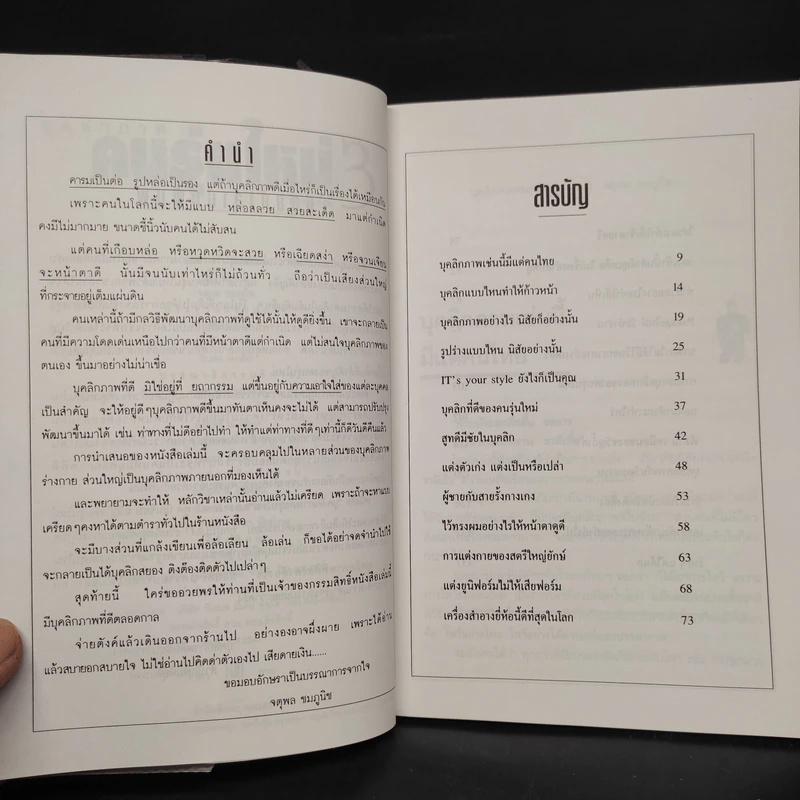 คำนำ
คารมเป็นต่อ รูปหล่อเป็นรอง แต่ถ้าบุคลิกภาพดีเมื่อไหร่ก็เป็นเรื่องได้เหมือนกัน
เพราะคนในโลกนี้จะให้มีแบบ หล่อสลวย สวยสะเด็ด มาแต่กำเนิด
คงมีไม่มากมาย ขนาดชี้นิ้วนับคนได้ไม่สับสน
แต่คนที่เกือบหล่อ หรือหวุดหวิดจะสวย หรือเฉียดสง่า หรือจวนเจียน
จะหน้าตาดี นั้นมีจนนับเท่าไหร่ก็ไม่ถ้วนทั่ว ถือว่าเป็นเสียงส่วนใหญ่
ที่กระจายอยู่เต็มแผ่นดิน
คนเหล่านี้ถ้ามีกลวิธีพัฒนาบุคลิกภาพที่ดูใช้ได้นั้นให้ดูดียิ่งขึ้น เขาจะกลายเป็น
คนที่มีความโดดเด่นเหนือไปกว่าคนที่มีหน้าตาดีแต่กำเนิด แต่ไม่สนใจบุคลิกภาพของ
ตนเอง ขึ้นมาอย่างไม่น่าเชื่อ
บุคลิกภาพที่ดี มิใช่อยู่ที่ ยถากรรม แต่ขึ้นอยู่กับความเอาใจใส่ของแต่ละบุคคล
เป็นสำคัญ จะให้อยู่ดีๆบุคลิกภาพดีขึ้นมาทันตาเห็นคงจะไม่ได้ แต่สามารถปรับปรุง
พัฒนาขึ้นมาได้ เช่น ท่าทางที่ไม่ดีอย่าไปทำ ให้ทำแต่ท่าทางที่ดีๆเท่านี้ก็ดีวันดีคืนแล้ว
การนำเสนอของหนังสือเล่มนี้ จะครอบคลุมไปในหลายส่วนของบุคลิกภาพ
ร่างกาย ส่วนใหญ่เป็นบุคลิกภาพภายนอกที่มองเห็นได้
และพยายามจะทำให้ หลักวิชาเหล่านั้นอ่านแล้วไม่เครียด เพราะถ้าจะหาแบบ
เครียดๆคงหาได้ตามตำราทั่วไปในร้านหนังสือ
จะมีบางส่วนที่แกล้งเขียนเพื่อล้อเลียน ล้อเล่น ก็ขอได้อย่าจดจำนำไปใช้
จะกลายเป็นได้บุคลิกสยอง ติงต๊องติดตัวไปเปล่าๆ
สุดท้ายนี้ ใคร่ขออวยพรให้ท่านที่เป็นเจ้าของกรรมสิทธิ์หนังสือเล่มนี้
มีบุคลิกภาพที่ดีตลอดกาล
จ่ายตังค์แล้วเดินออกจากร้านไป อย่างองอาจผึ่งผาย เพราะได้อ่าน
แล้วสบายอกสบายใจ ไม่ใช่อ่านไปคิดด่าตัวเองไป เสียดายเงิน......
ขอมอบอักษราเป็นบรรณาการจากใจ
จตุพล ชมภูนิช
สารบัญ
บุคลิกภาพเช่นนี้มีแต่คนไทย 9
บุคลิกแบบไหนทำให้ก้าวหน้า 14
บุคลิกภาพอย่างไร นิสัยก็อย่างนั้น 19
รูปร่างแบบไหน นิสัยอย่างนั้น 25
IT's your style ยังไงก็เป็นคุณ 31
บุคลิกที่ดีของคนรุ่นใหม่ 37
สูทดีมีชัยในบุคลิก 42
แต่งตัวเก่ง แต่งเป็นหรือเปล่า 48
ผู้ชายกับสายรั้งกางเกง 53
ไว้ทรงผมอย่างไรให้หน้าตาดูดี 58
การแต่งกายของสตรีใหญ่ยักษ์ 63
แต่งยูนิฟอร์มไม่ให้เสียฟอร์ม 68
เครื่องสำอางยี่ห้อนี้ดีที่สุดในโลก 73